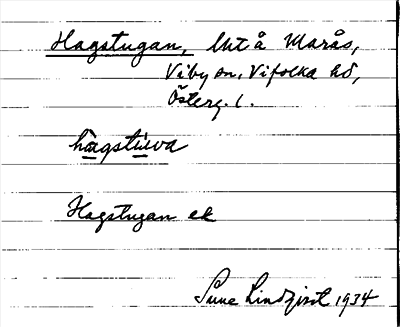 Hagstugan, lht å Marås,
Viby sn, Vifolka hd,
Österg. l.
hagstuva
Hagstugan ek
Sune Lindqvist 1934